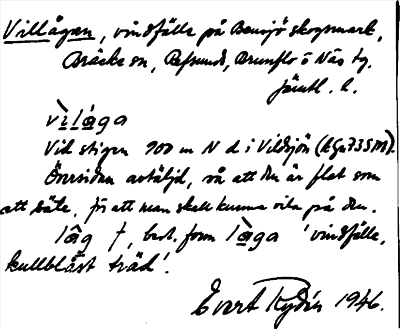 Villågan, vindfälle på Bensjö skogsmark,
Bräcke sn, Refsund, Brunflo o Näs tg.
Jämtl. l.
vìlåga
Vid stigen 900 m N d. i Vildsjön (EGa73SM).
Översidan avtäljd, så att den är flat som
ett säte, för att man skall kunna vila på den.
låg f, best. form låga 'vindfälle,
kullblåst träd'.
Evert Rydén 1946.